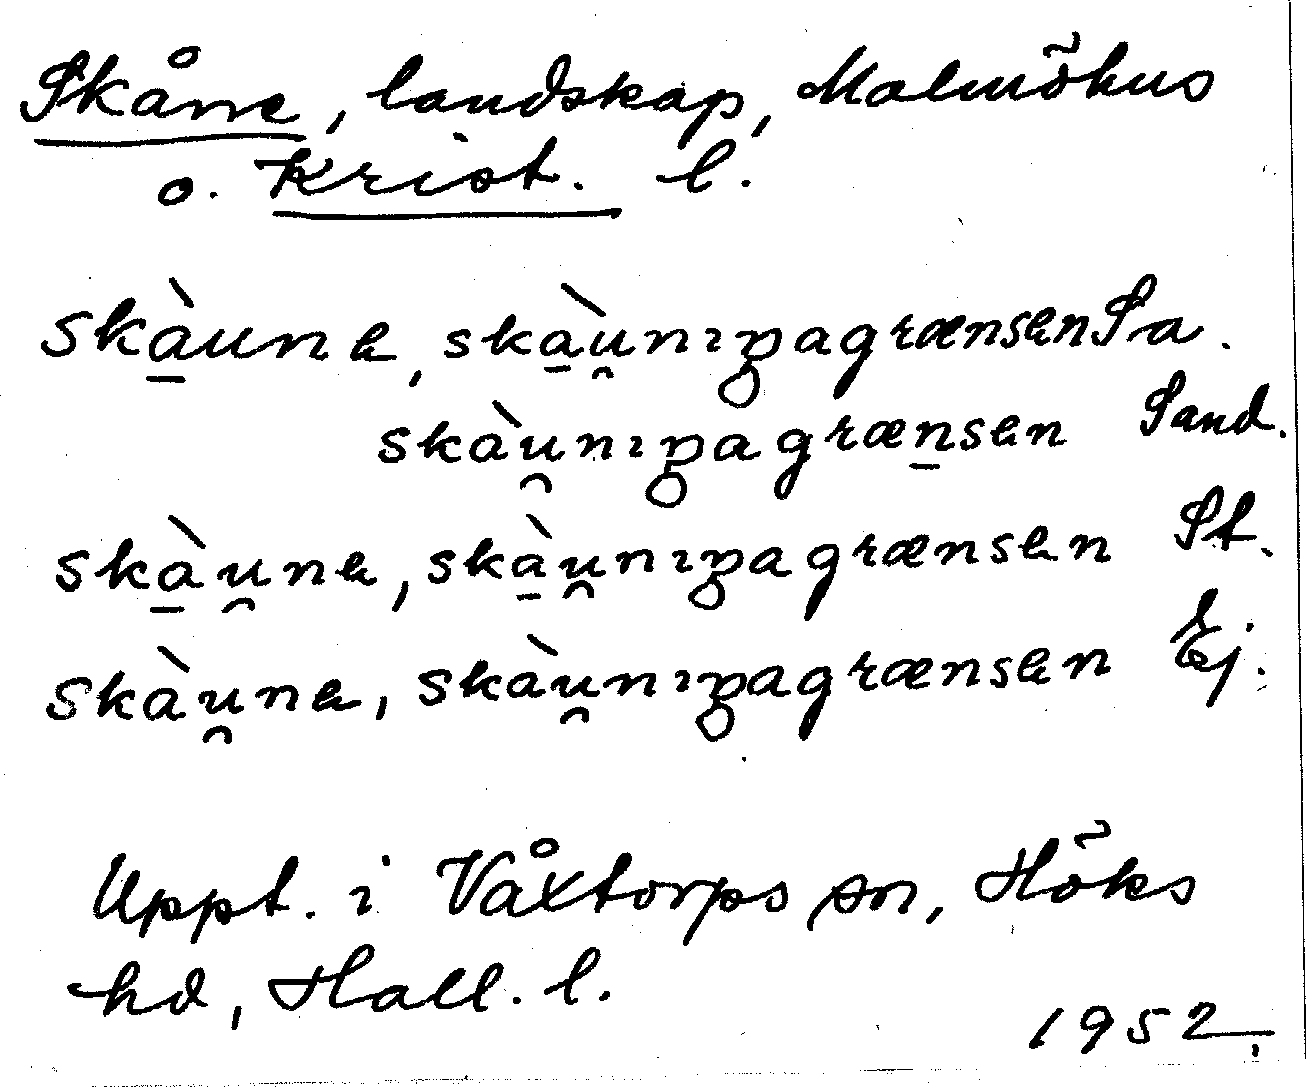 Skåne, landskap, Malmöhus
o. Krist. l.
skàu̯ne, skàu̯nıŋagrænsen Sra.
skàu̯nıŋagrænsen Sand.
skàu̯ne, skàu̯nıŋagrænsen St.
skàu̯ne, skàu̯nıŋagrænsen Ej.
Uppt. i Våxtorps sn, Höks
hd, Hall. l.
1952.